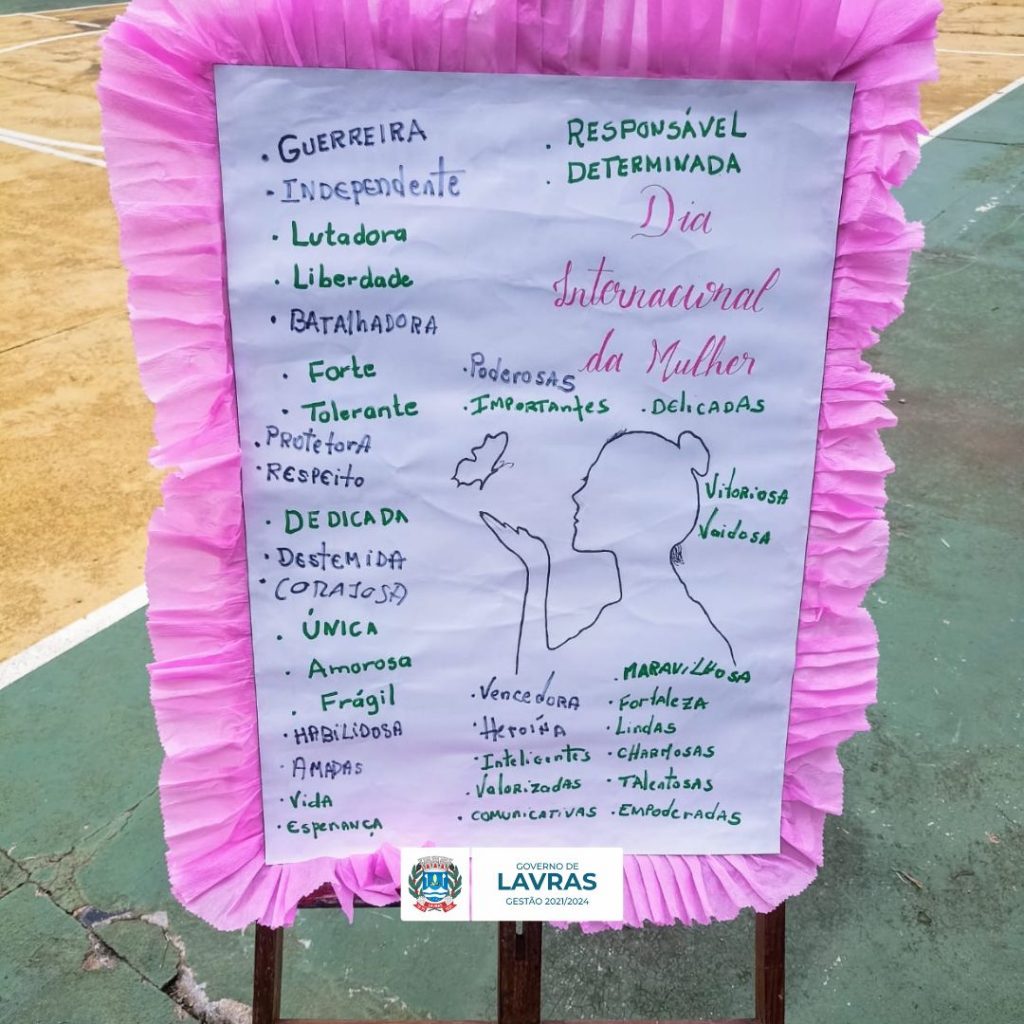 • GUERREIRA
• INDEPENDENTE
• Lutadora
• Liberdade
• BATALHADORA
• Forte
• Tolerante
• PROTETORA
• RESPEITO
• DEDICADA
• DESTEMIDA
• CORAJOSA
• ÚNICA
• Amorosa
• Frágil
• HABILIDOSA
• AMADAS
• Vida
• Esperança
• RESPONSÁVEL
• DETERMINADA
Dia
Internacional
da Mulher
• Poderosas
• IMPORTANTES
• DELICADAS
• Vitoriosa
Vaidosa
• Vencedora
• Heroína
• Inteligentes
• Valorizadas
• COMUNICATIVAS
• MARAVILHOSA
• Fortaleza
• Lindas
• CHARMOSAS
• TALENTOSAS
• EMPODERADAS
GOVERNO DE
LAVRAS
GESTÃO 2021/2024